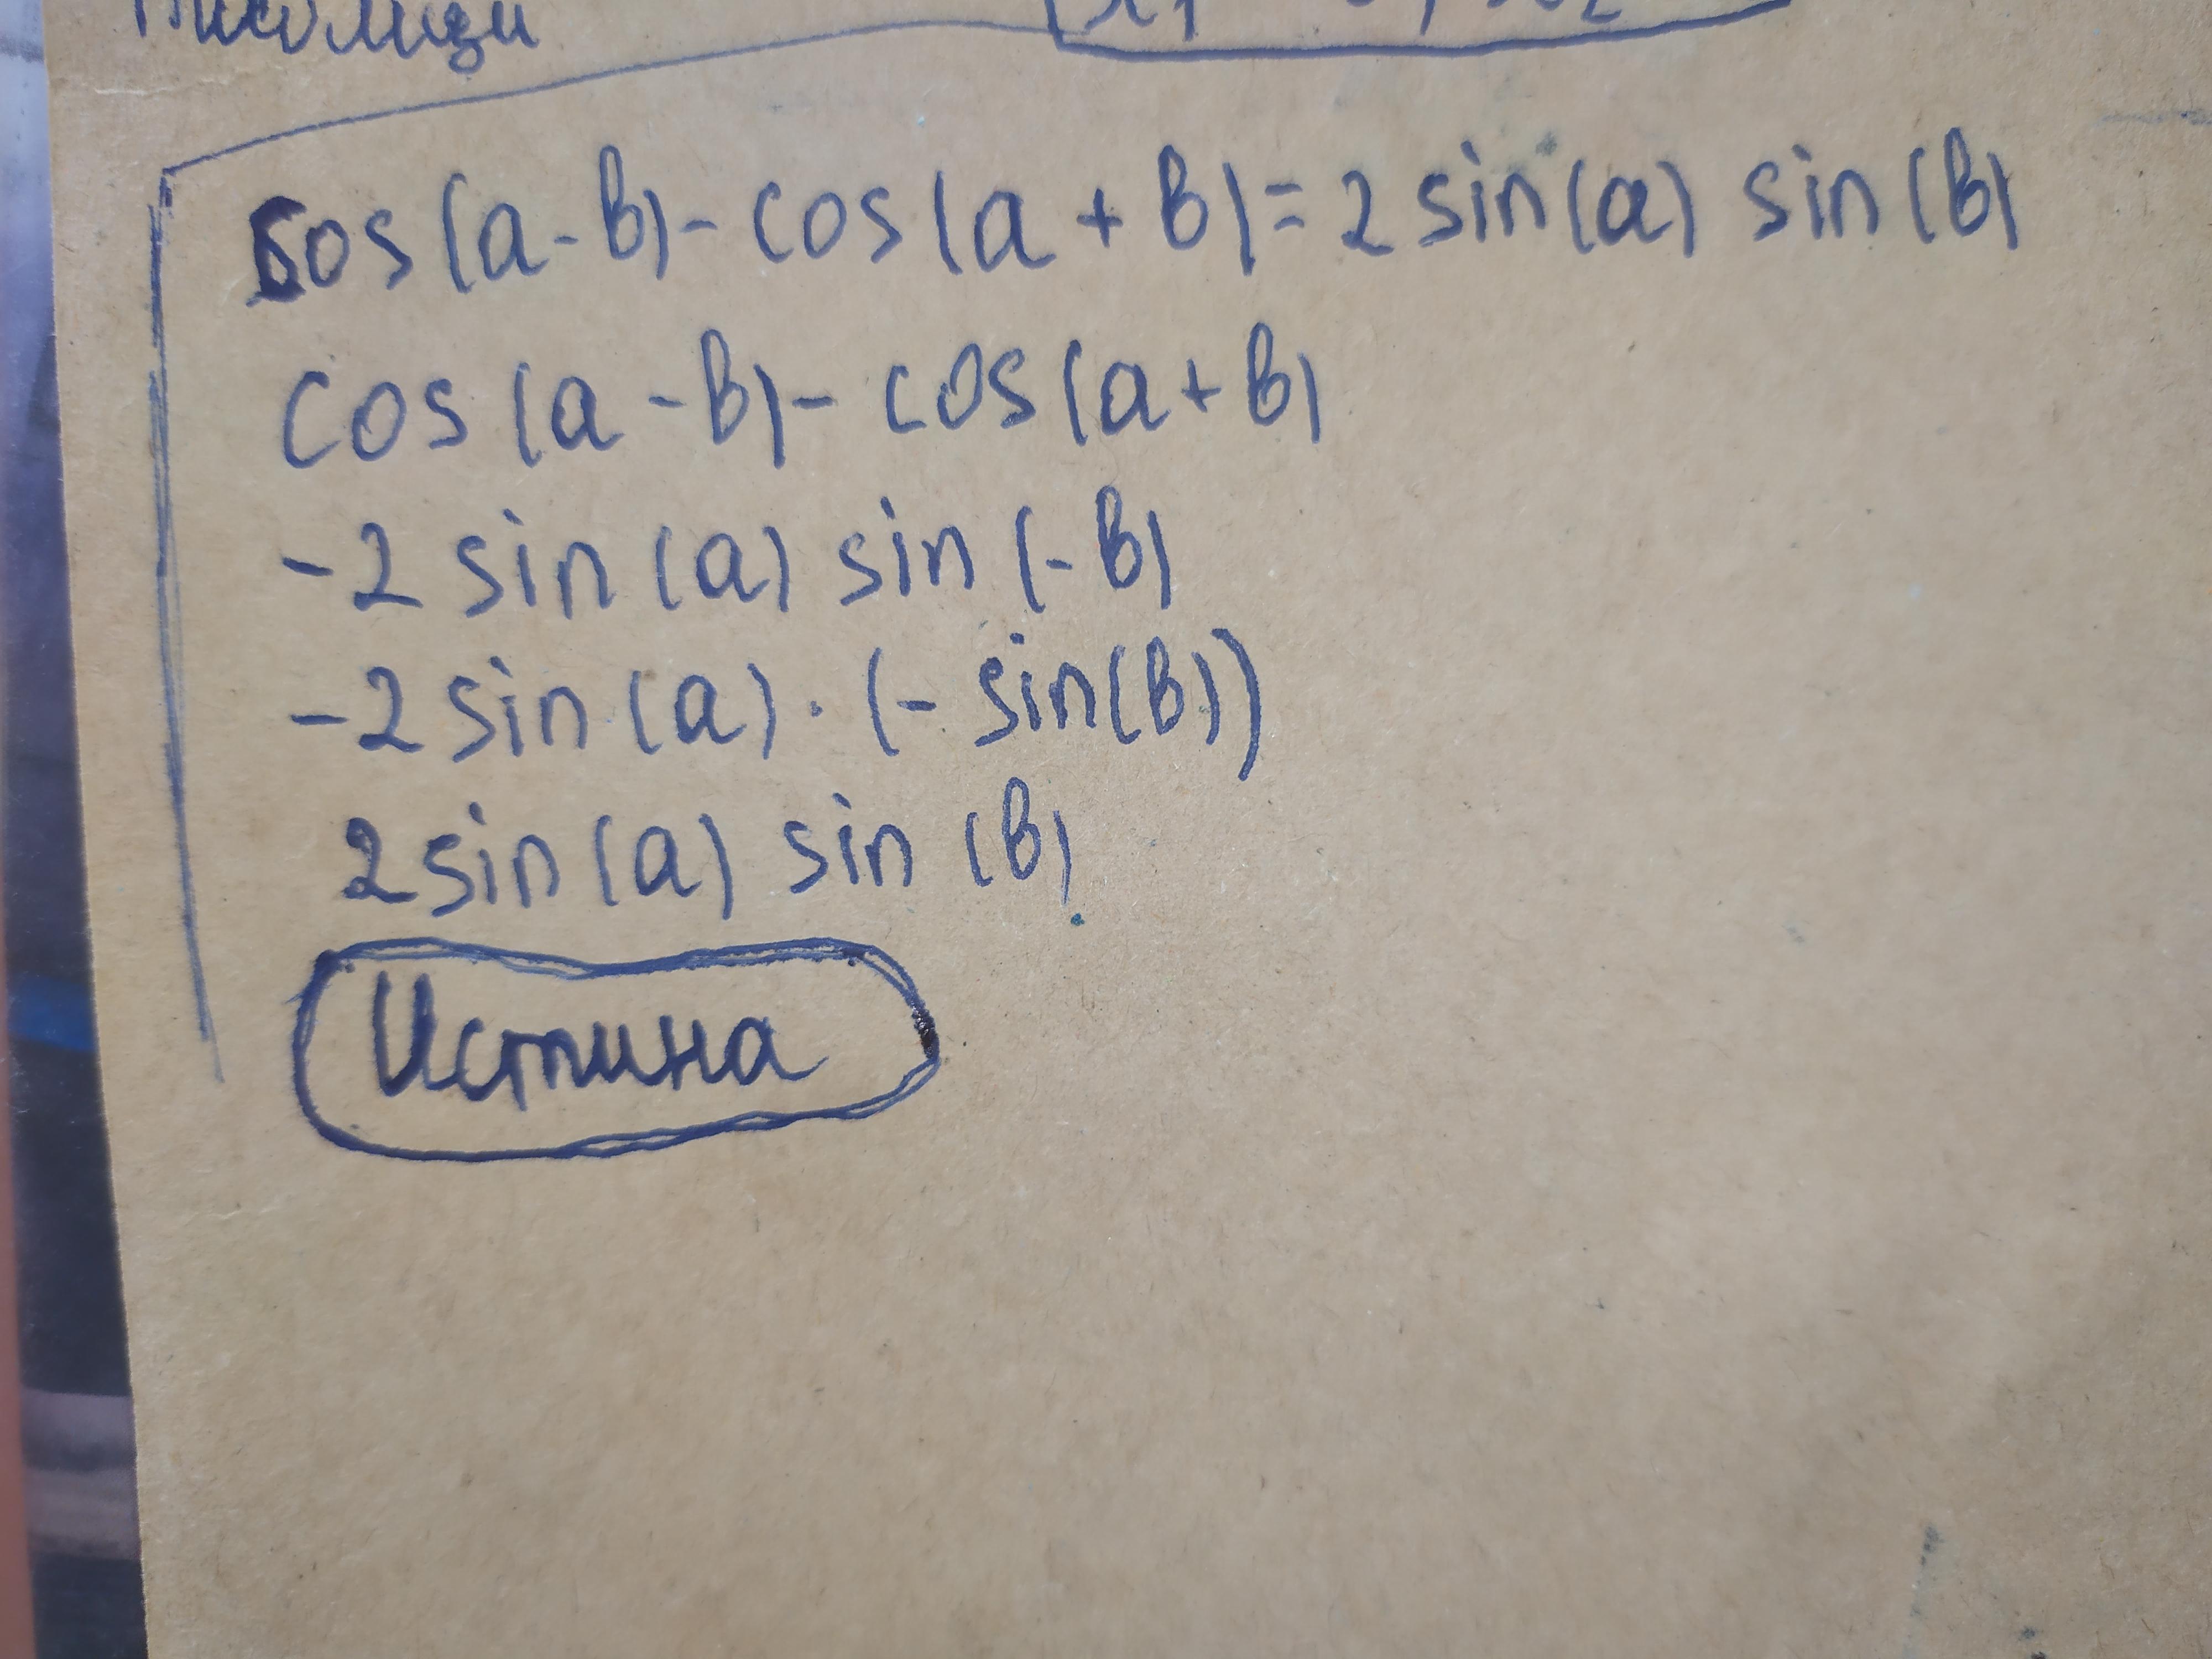 cos(a-b)-cos(a+b)=2sin(a) sin(b)
cos(a-b)-cos(a+b)
-2 sin(a) sin(-b)
-2 sin(a)·(-sin(b))
2sin(a) sin(b)
Истина